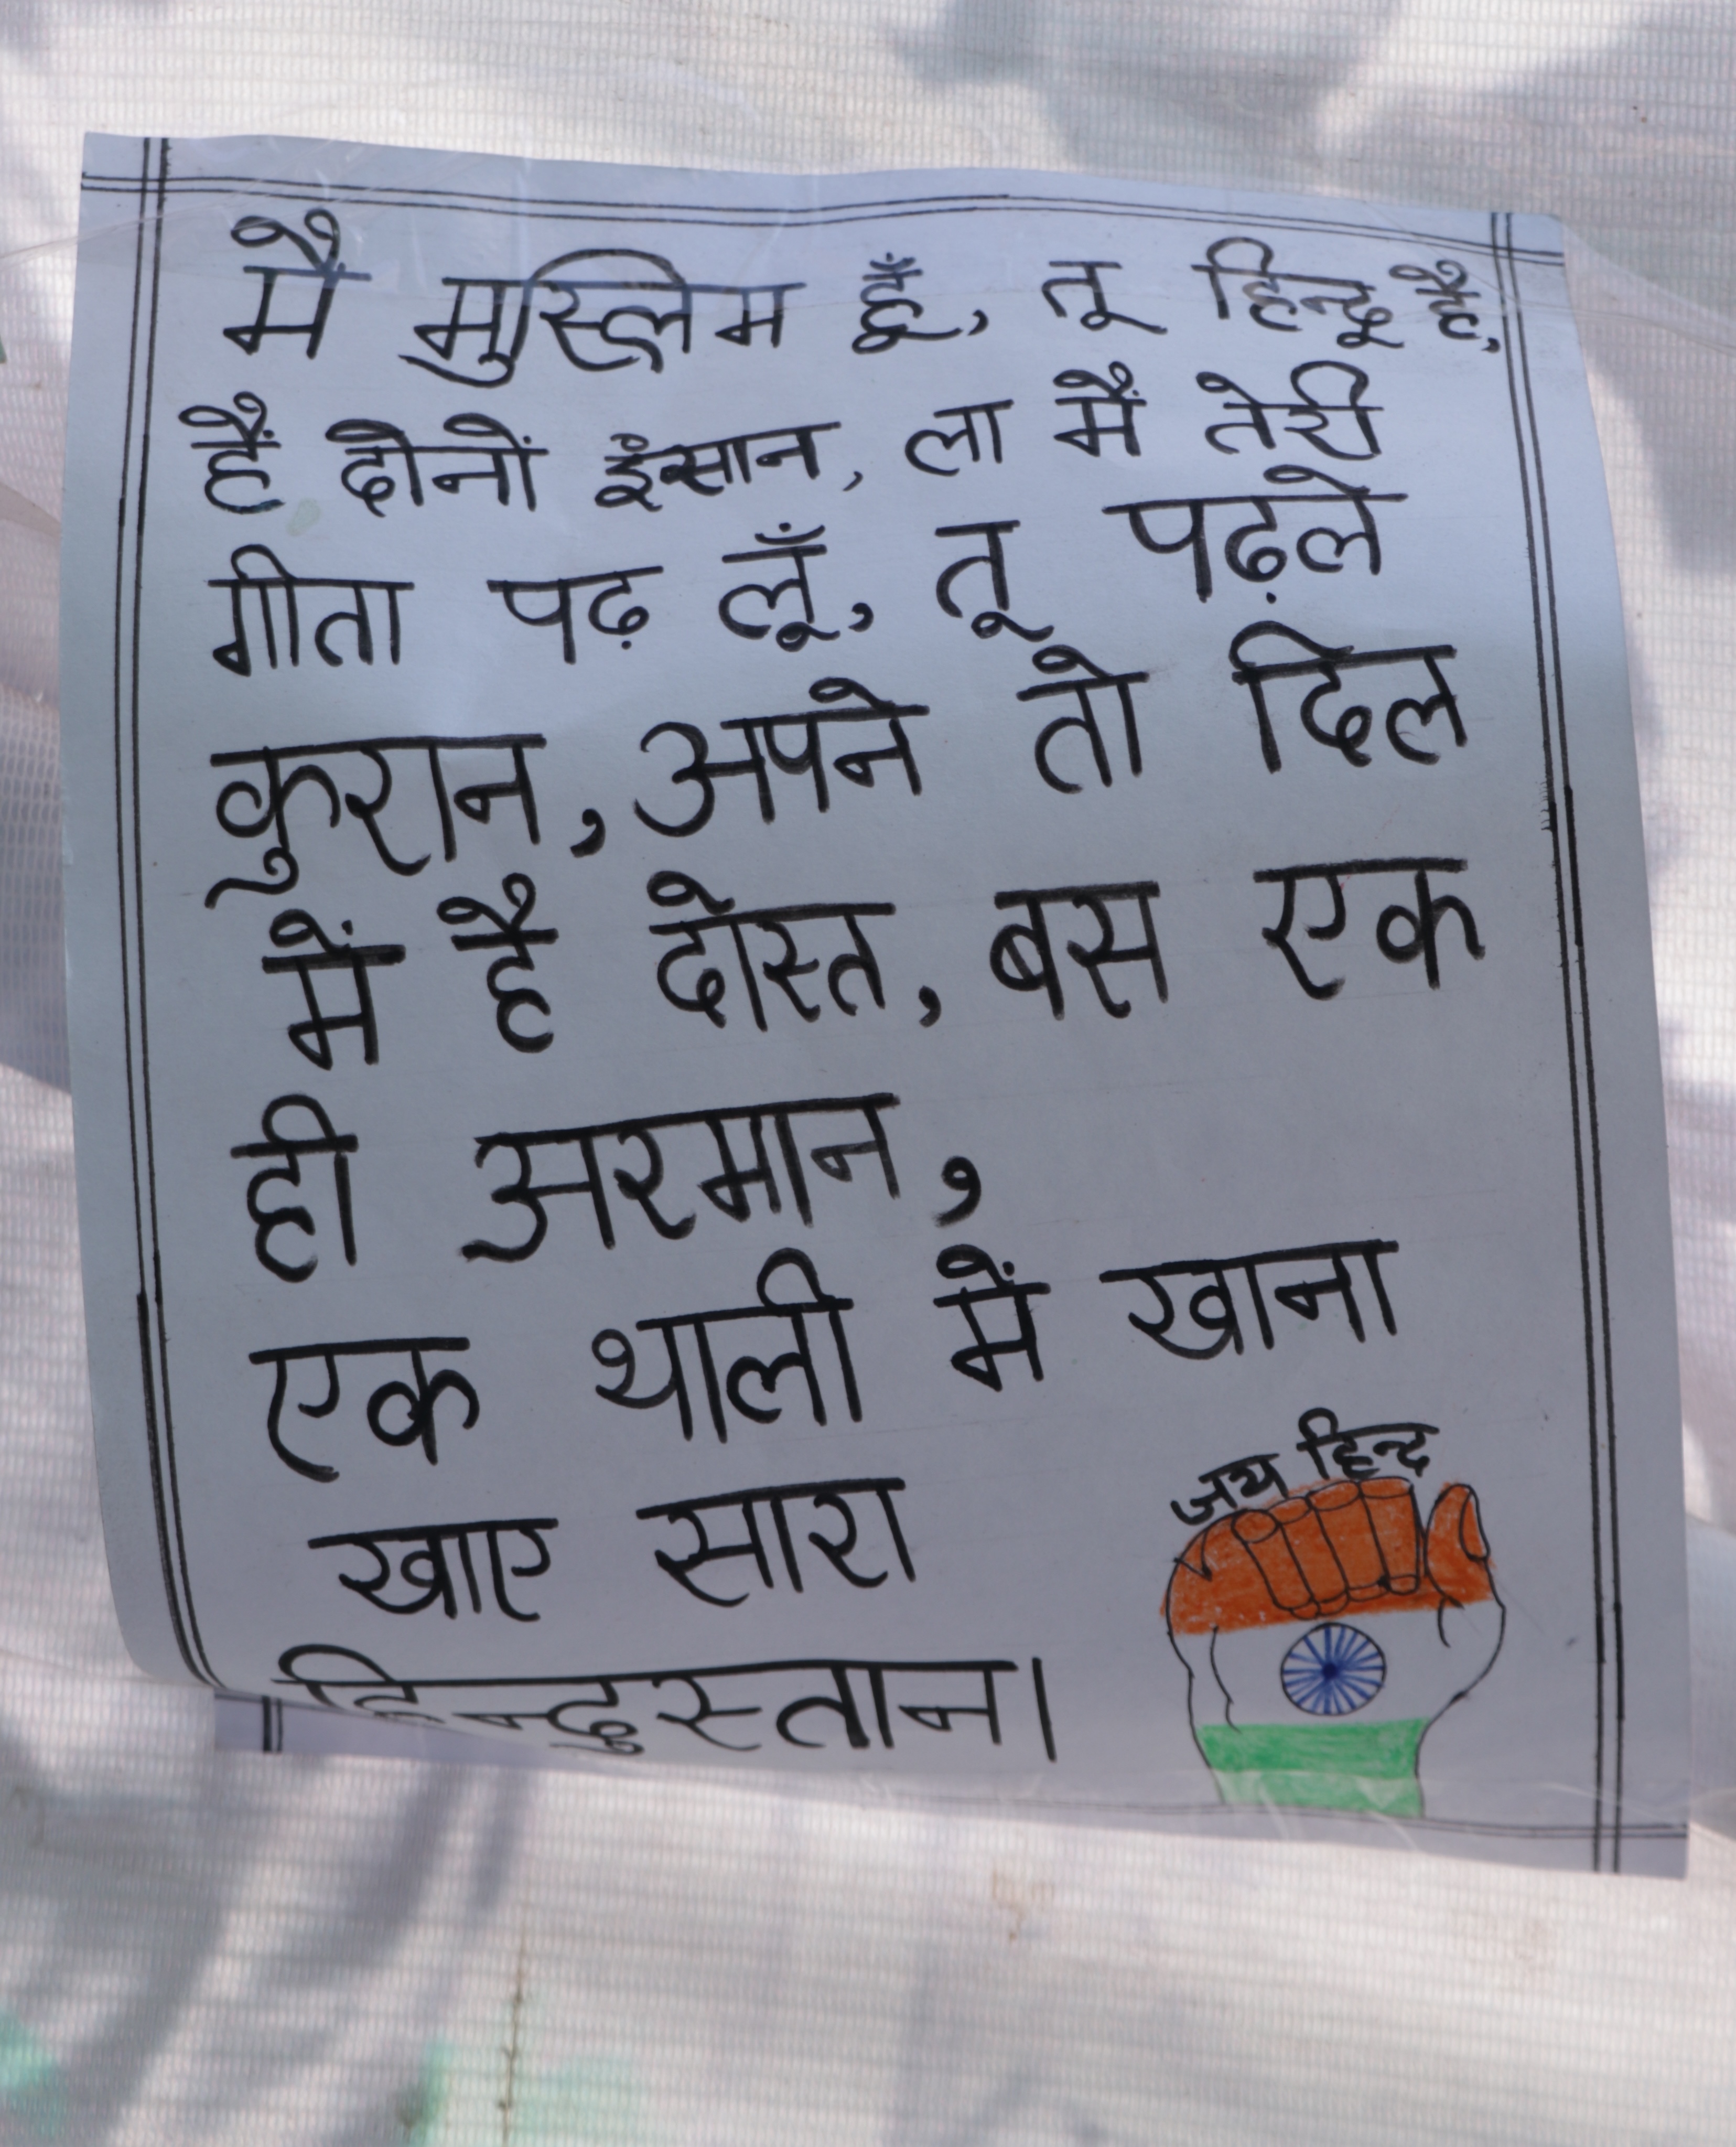 मै मुस्लिम हूँ, तू हिन्दू है,
हैं दोनों इंसान, ला मैं तेरी
गीता पढ़ लूँ, तू पढ़ले
कुरान, अपने तो दिल
में है दोस्त, बस एक
ही अरमान,
एक थाली में खाना
खाए सारा
हिन्दुस्तान।
जय हिन्द